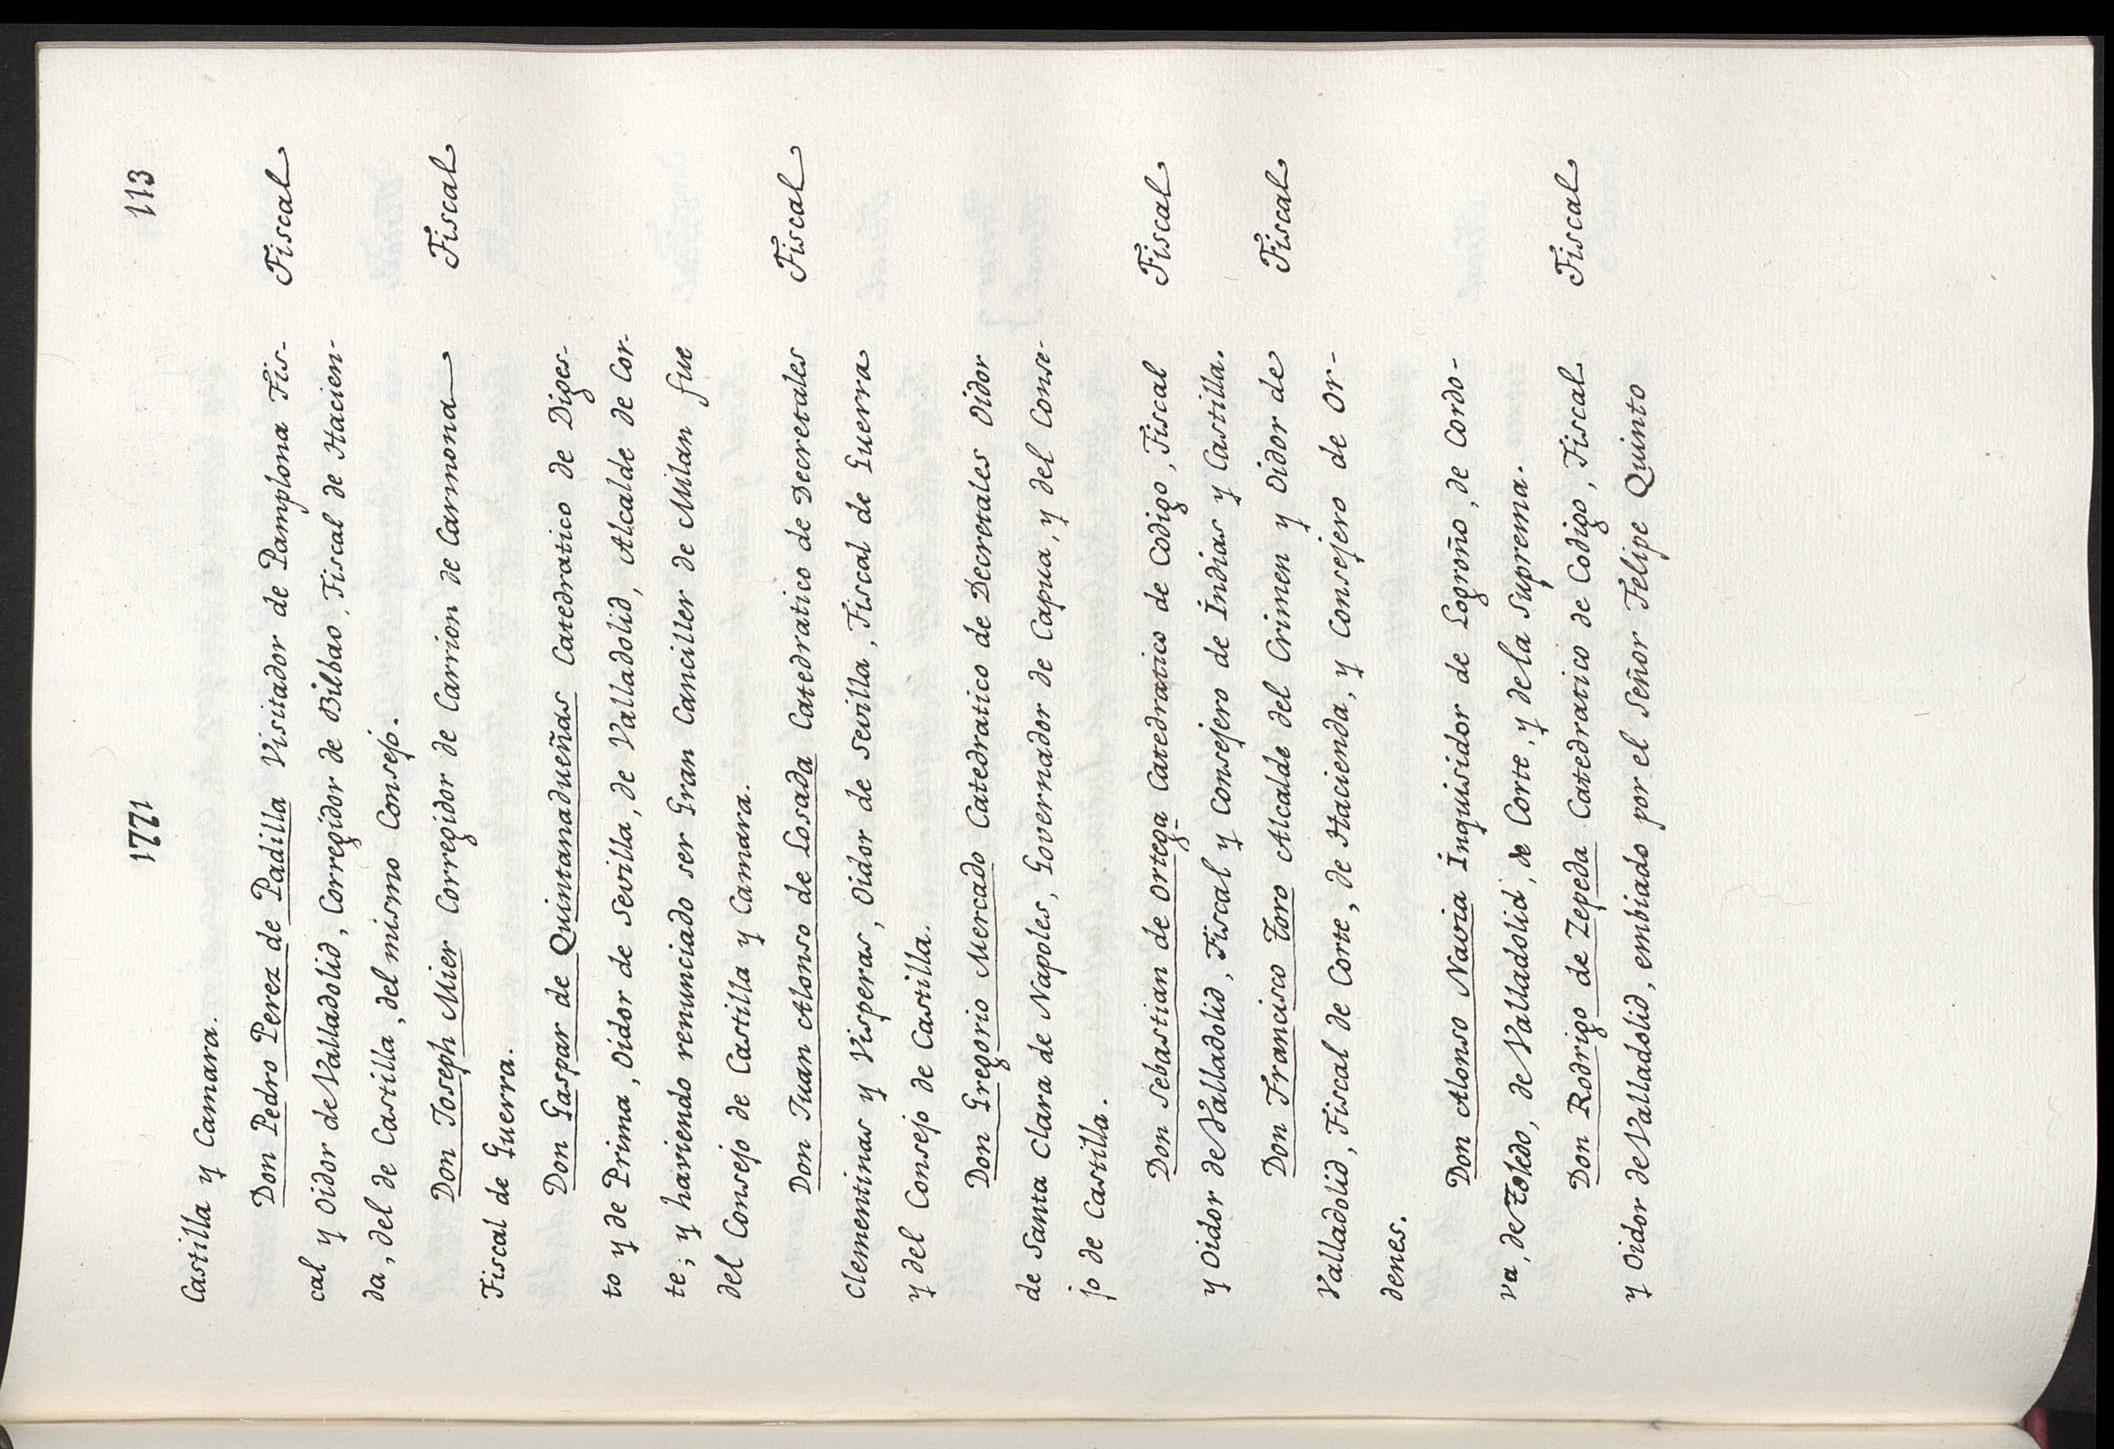 1771
113
Castilla y Camara.
Don Pedro Perez de Padilla Visitador de Pamplona Fis-
Fiscal
cal y Oidor de Valladolid, Corregidor de Bilbao, Fiscal de Hacien-
da, del de Castilla, del mismo Consejo.
Don Joseph Mier Corregidor de Carrion de Carmona
Fiscal
Fiscal de Guerra.
Don Gaspar de Quintanadueñas Catedratico de Diges-
to y de Prima, Oidor de Sevilla, de Valladolid, Alcalde de Cor-
te; y haviendo renunciado ser Gran Canciller de Milan fue
del Consejo de Castilla y Camara.
Don Juan Alonso de Losada Catedratico de Decretales
Fiscal
Clementinas y Visperas, Oidor de Sevilla, Fiscal de Guerra
y del Consejo de Castilla.
Don Gregorio Mercado Catedratico de Decretales Oidor
de Santa Clara de Napoles, Governador de Capua, y del Conse-
jo de Castilla.
Don Sebastian de Ortega Catedratico de Codigo, Fiscal
Fiscal
y Oidor de Valladolid, Fiscal y Consejero de Indias y Castilla.
Don Francisco Toro Alcalde del Crimen y Oidor de
Fiscal
Valladolid, Fiscal de Corte, de Hacienda, y Consejero de Or-
denes.
Don Alonso Navia Inquisidor de Logroño, de Cordo-
va, de Toledo, de Valladolid, de Corte, y de la Suprema.
Don Rodrigo de Zepeda Catedratico de Codigo, Fiscal
Fiscal
y Oidor de Valladolid, embiado por el Señor Felipe Quinto